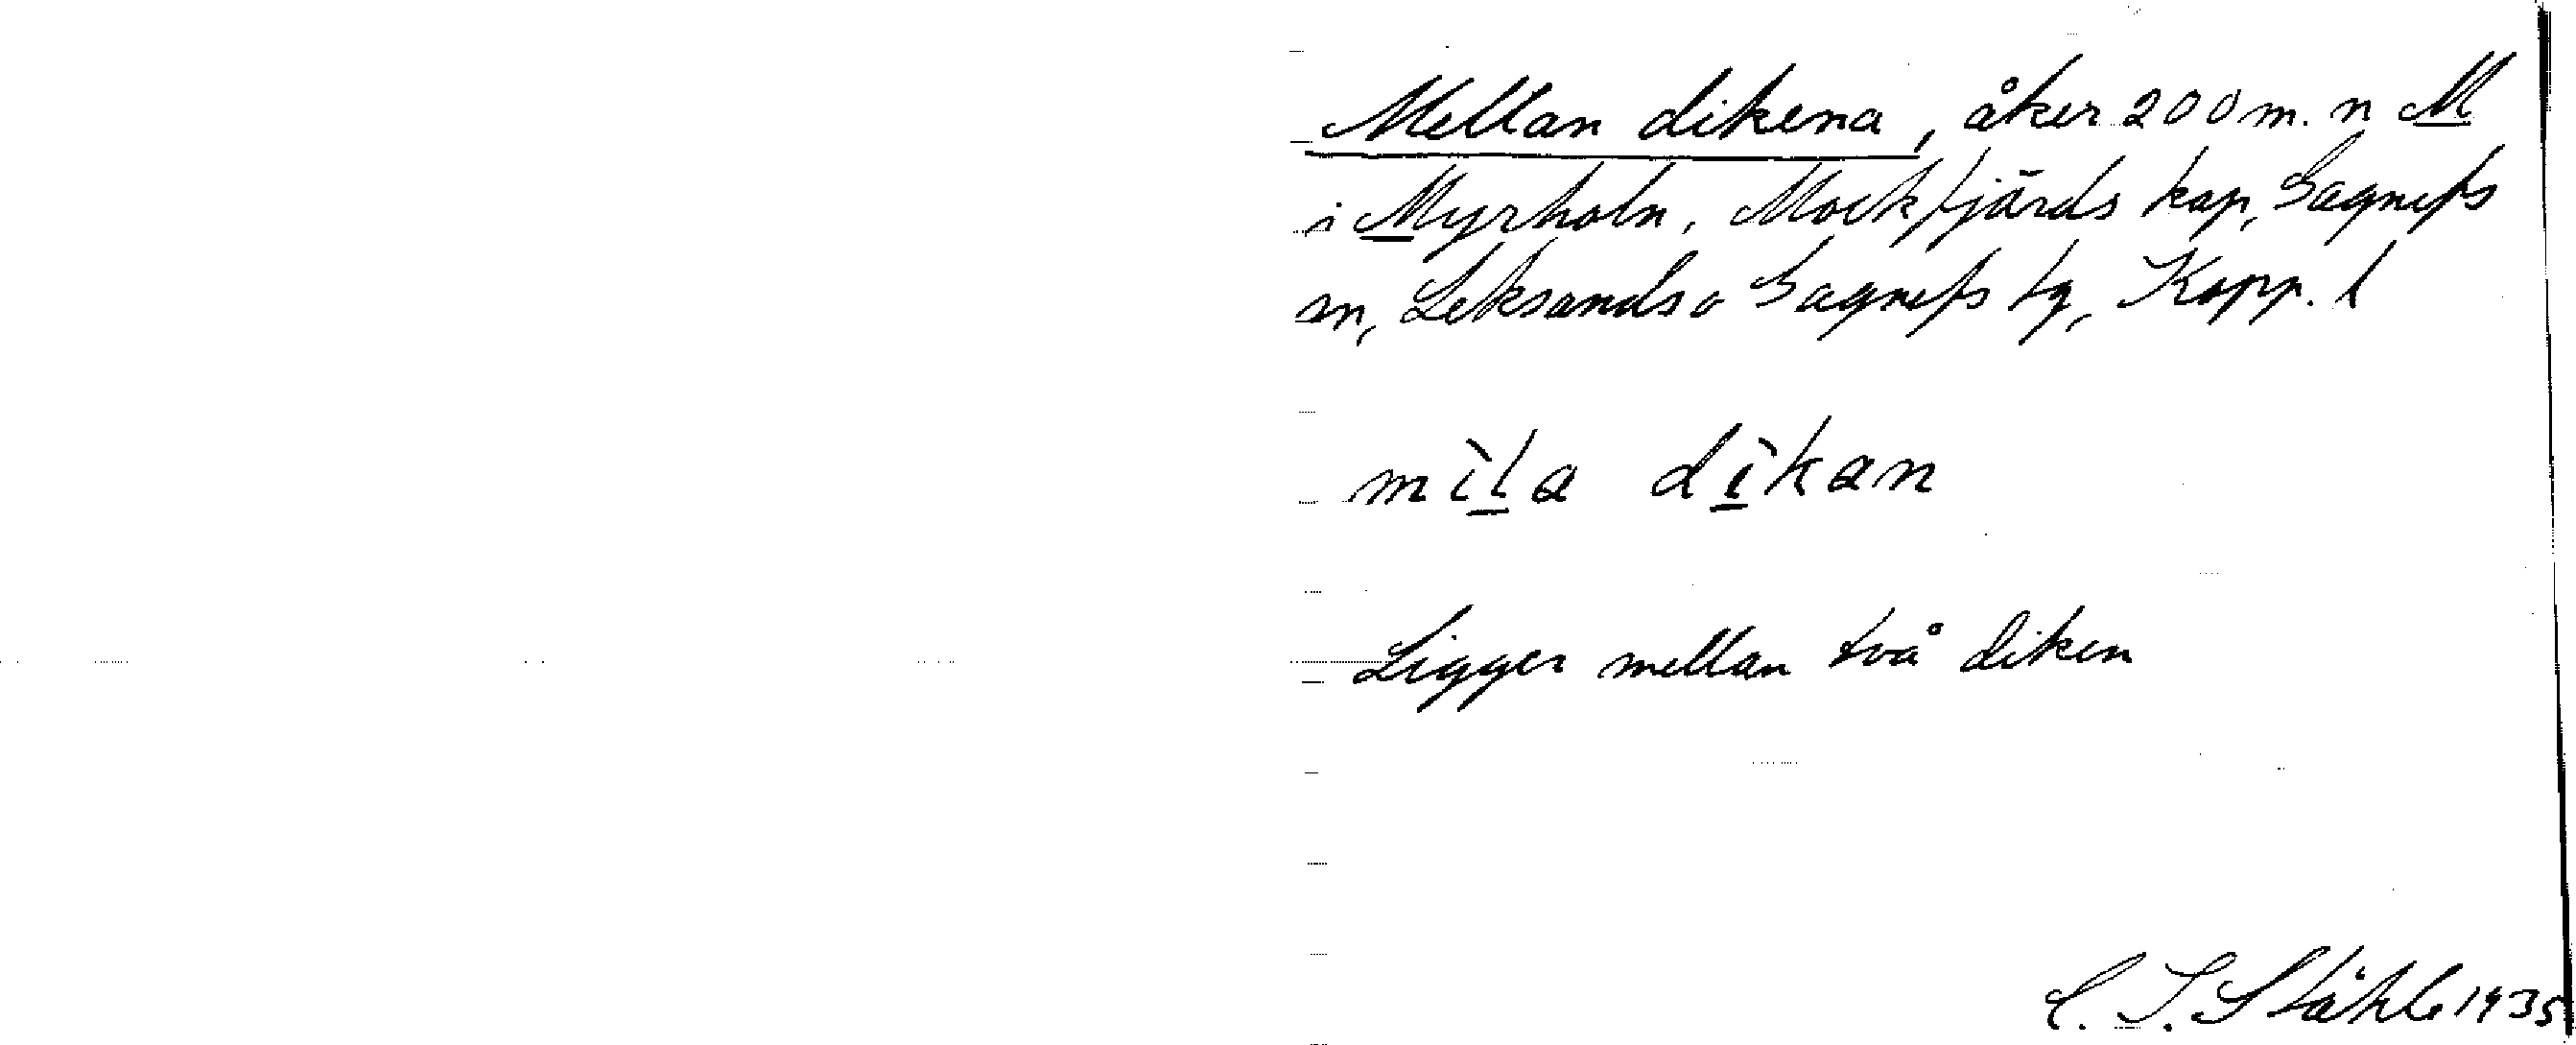 Mellan dikena, åker 200 m. n M
i Myrholn, Mockfjärds kap, Gagnefs
sn, Leksands o Gagnefs tg, Kopp. l
mìla dìkan
Ligger mellan två diken
C. I. Ståhle 1935